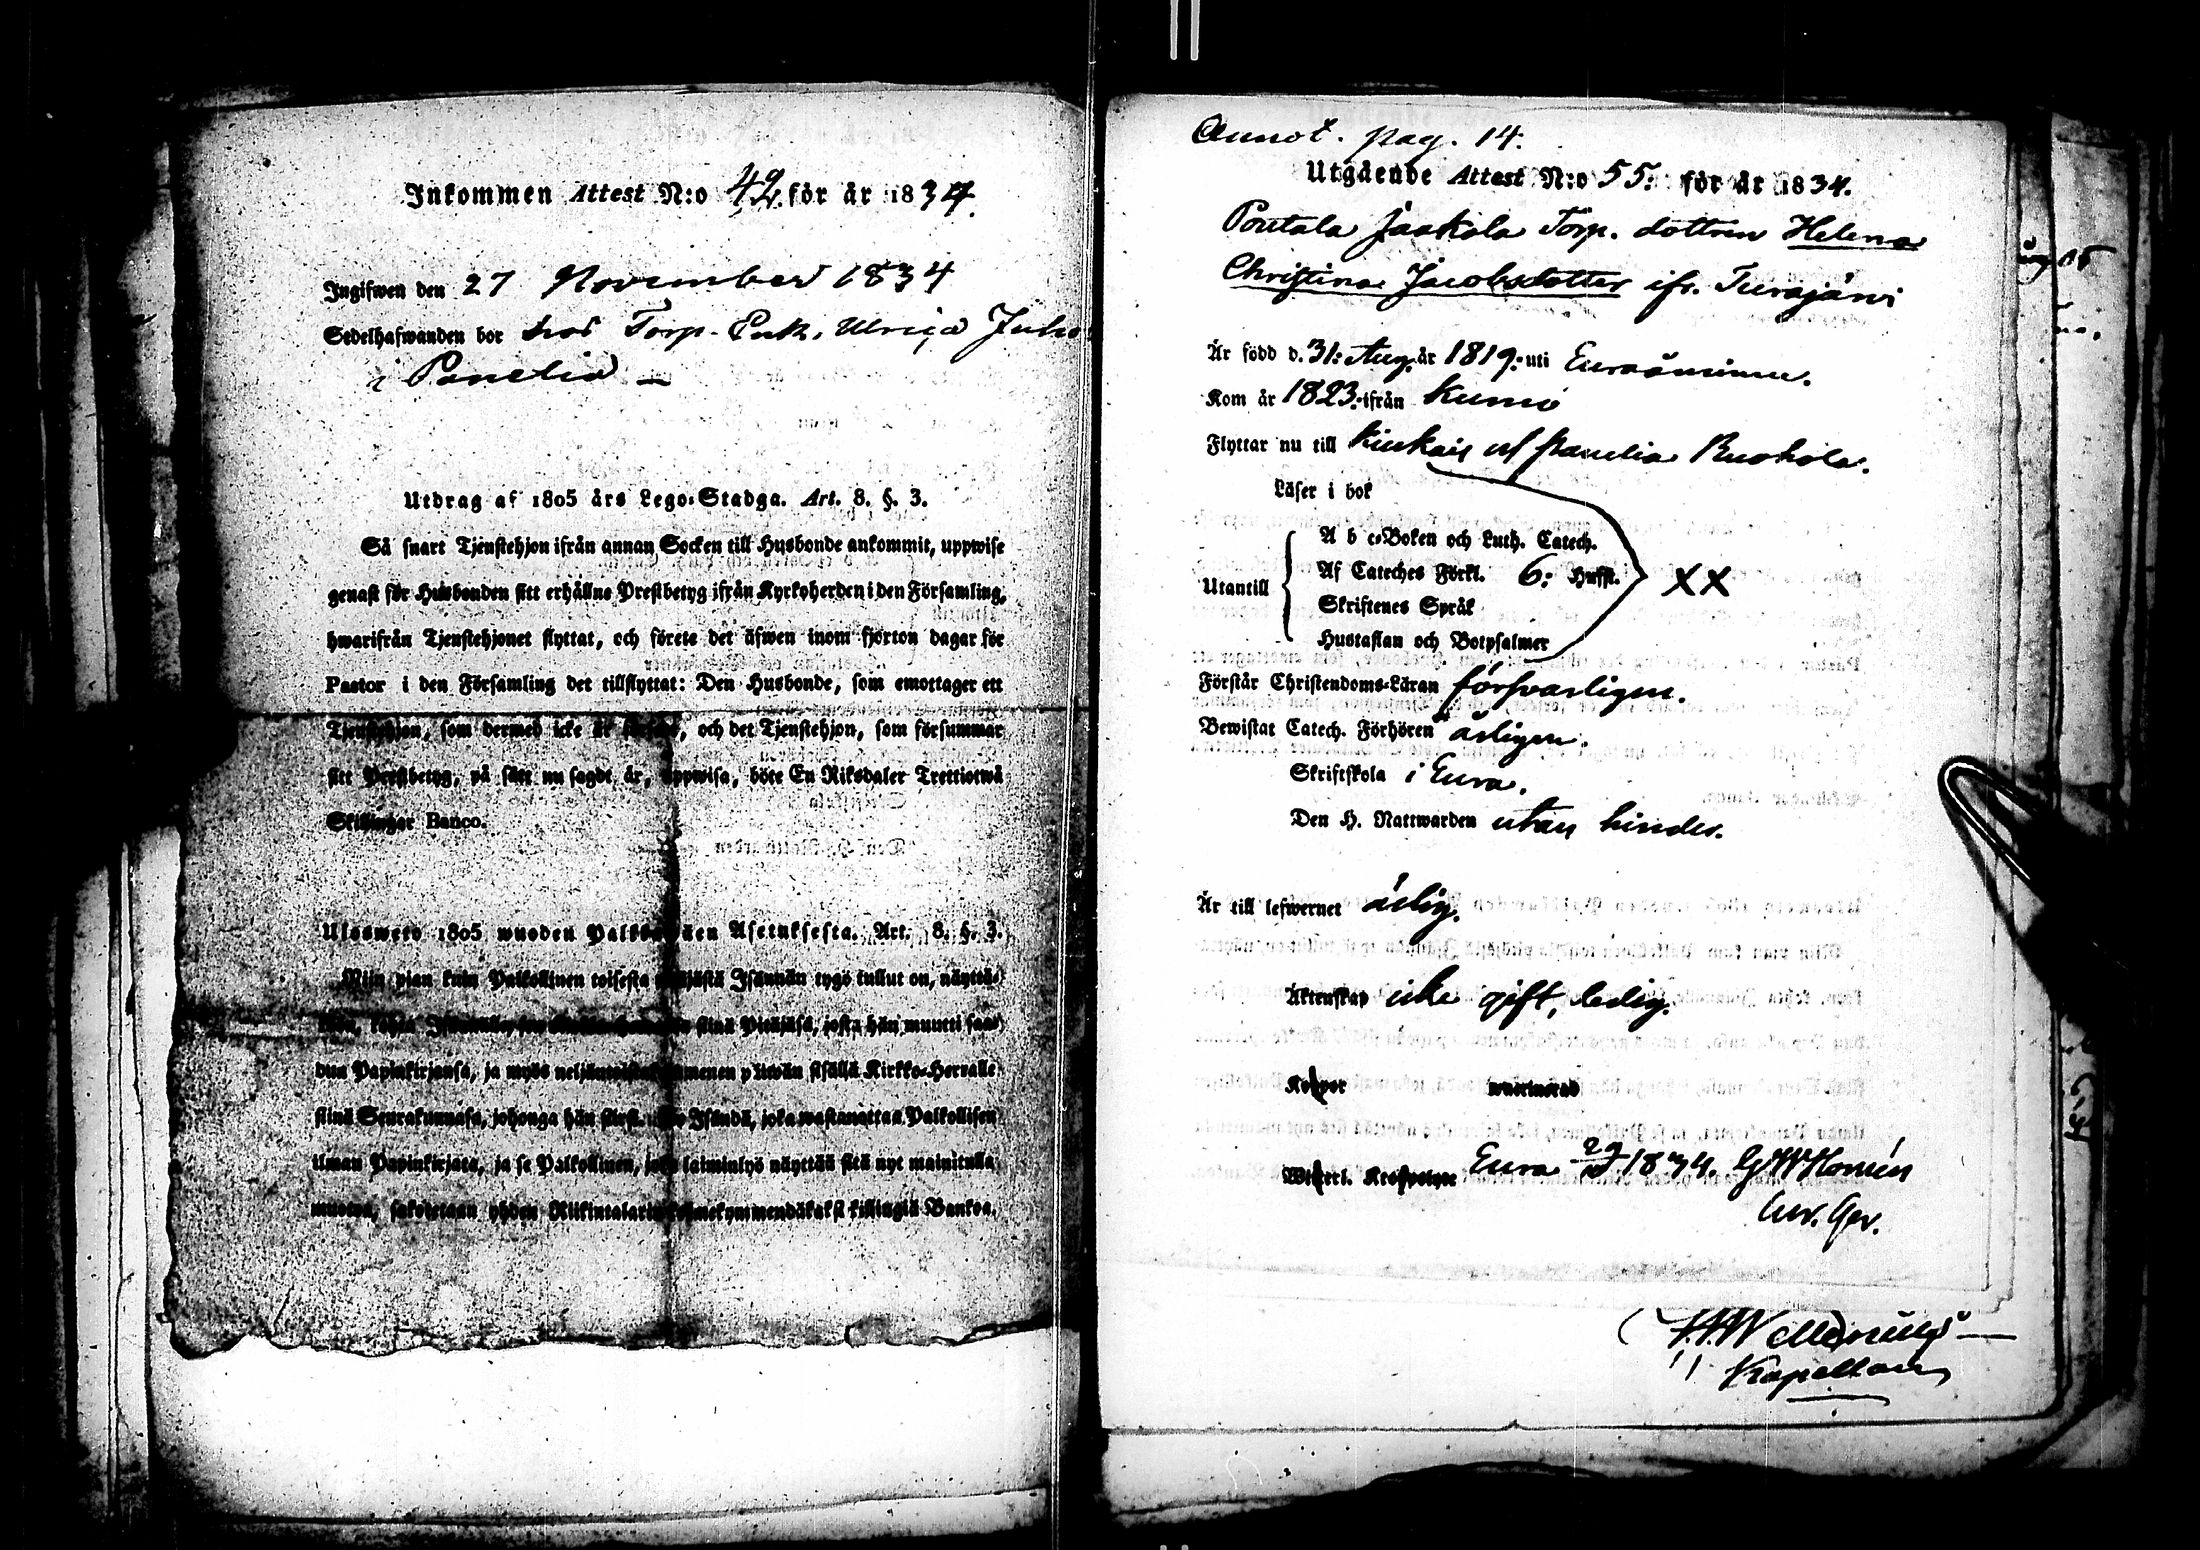 Inkommen Attest N:o 42. för år 1834.
Ingifwen den 27 November 1834
Sedelhafwanden bor hos Torp. Enk. Ulrica
i Panelia —
Utdrag af 1805 års Lego-Stadga. Art. 8. §. 3.
Så snart Tjenstehjon ifrån annan Socken till Husbonde ankommit, uppwise
genast för Husbonden sitt erhållne Prestbetyg ifrån Kyrkoherden i den Församling,
hwarifrån Tjenstehjonet flyttat, och förete det äfwen inom fjorton dagar för
Pastor i den Församling det tillflyttat: Den Husbonde, som emottager ett
Tjenstehjon, som dermed icke är, och det Tjenstehjon, som försummar
sitt Prestbetyg, på sätt nu sagdt är, uppwisa, böte En Riksdaler Trettiotwå
Skillingar Banco.
Ulosweto 1805 wuoden Asetuksesta. Art. 8. §. 3.
Niin pian kuin Palkollinen toisesta Isännän tygö tullut on, näyttä-
siinä Pitäjäsä, josta hän muutti saa-
dun Papinkirjansa, ja myös päiwän sisällä Kirkko-Herralle
siinä Seurakunnasa, johonga hän siirsi. Isändä, joka wastanottaa Palkollisen
ilman Papinkirjata, ja se Palkollinen, joka laiminlyö näyttää sitä nyt mainitulla
muotoa, sakotetaan yhden Riikintalarin killingiä Bankoa.
Annot. pag. 14.
Utgående Attest N:o 55. för år 1834.
Pontala Jaakola Torp. dottren Helena
Christina Jacobsdotter ifr. Turajärvi
Är född d. 31: Aug. år 1819: uti Euraåminne.
Kom år 1823: ifrån Kumo
Flyttar nu till Kiukais o/ Panelia Ruohola.
Läser i bok
A b c-Boken och Luth. Catech.
Utantill Af Cateches Förkl. 6: Hufst. XX
Skriftenes Språk
Hustaflan och Botpsalmer
Förstår Christendoms-Läran försvarligen.
Bewistat Catech. Förhören årligen.
Skriftskola i Eura.
Den H. Nattwarden utan hinder.
Är till lefwernet ärlig.
Äktenskap icke gift, ledig.
Koppor
Eura 1834.
Kapellan